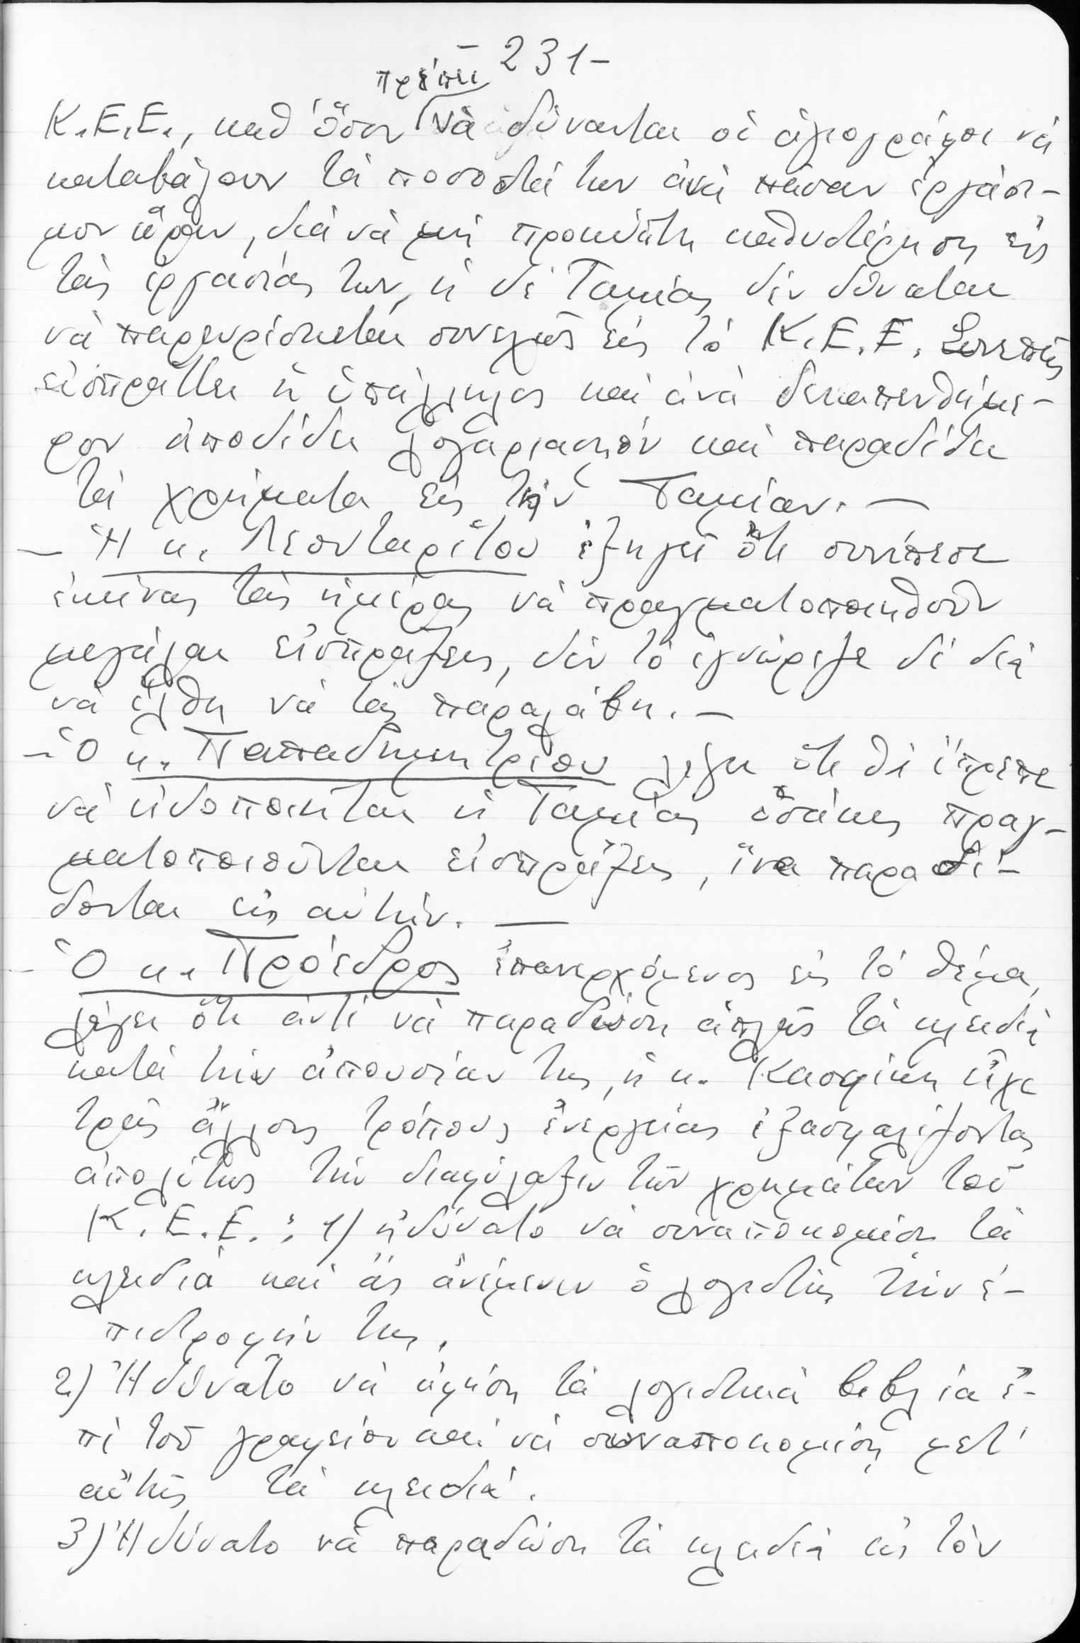 - 231 -
πρέπει
Κ.Ε.Ε., καθ' ὅσον νὰ δύνανται οἱ ἁγιογράφοι νὰ
καταβάλουν τὰ ποσοστά των ἀνὰ πᾶσαν ἐργάσι-
μον ὥραν, διὰ νὰ μὴ προκύπτῃ καθυστέρησις εἰς
τὰς ἐργασίας των, ἡ δὲ Ταμίας δὲν δύναται
νὰ παρευρίσκεται συνεχῶς εἰς τὸ Κ.Ε.Ε. Συνεπῶς
εἰσπράττει ἡ ὑπάλληλος καὶ ἀνὰ δεκαπενθήμε-
ρον ἀποδίδει λογαριασμὸν καὶ παραδίδει
τὰ χρήματα εἰς τὴν Ταμίαν. —
— Ἡ κ. Λεονταρίτου ἐξηγεῖ ὅτι συνέπεσε
ἐκείνας τὰς ἡμέρας νὰ πραγματοποιηθοῦν
μεγάλαι εἰσπράξεις, δὲν τὸ ἐγνώριζε δὲ διὰ
νὰ ἔλθῃ νὰ τὰς παραλάβῃ. —
— Ὁ κ. Παπαδημητρίου λέγει ὅτι θὰ ἔπρεπε
νὰ εἰδοποιῆται ἡ Ταμίας ὁσάκις πραγ-
ματοποιοῦνται εἰσπράξεις, ἵνα παραδί-
δονται εἰς αὐτήν. —
— Ὁ κ. Πρόεδρος ἐπανερχόμενος εἰς τὸ θέμα,
λέγει ὅτι ἀντὶ νὰ παραδώσῃ ἁπλῶς τὰ κλειδιὰ
κατὰ τὴν ἀπουσίαν της, ἡ κ. Κασφίκη εἶχε
τρεῖς ἄλλους τρόπους ἐνεργείας ἐξασφαλίζοντας
ἀπολύτως τὴν διαφύλαξιν τῶν χρημάτων τοῦ
Κ.Ε.Ε.: 1) ἠδύνατο νὰ συναποκομίσῃ τὰ
κλειδιὰ καὶ ἂς ἀνέμενεν ὁ λογιστὴς τὴν ἐ-
πιστροφήν της.
2) Ἠδύνατο νὰ ἀφήσῃ τὰ λογιστικὰ βιβλία ἐ-
πὶ τοῦ γραφείου καὶ νὰ συναποκομίσῃ μετ'
αὐτῆς τὰ κλειδιά.
3) Ἠδύνατο νὰ παραδώσῃ τὰ κλειδιὰ εἰς τὸν